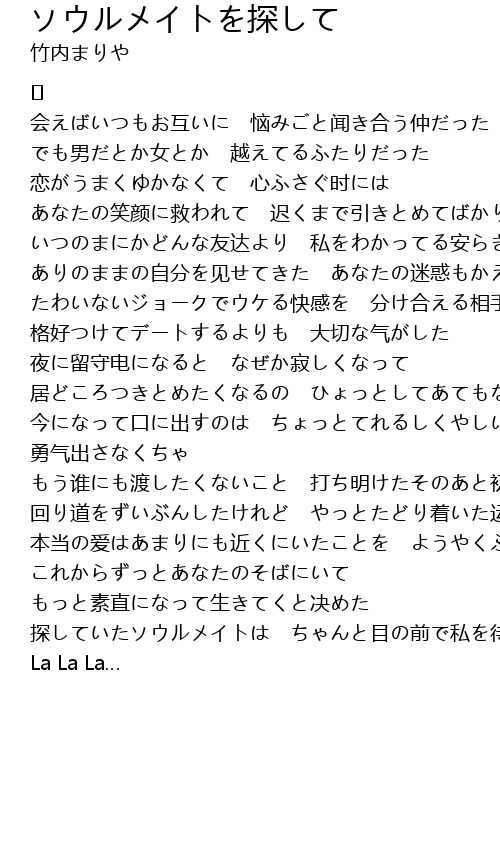 ソウルメイトを探して
竹内まりや
会えばいつもお互いに　悩みごと闻き合う仲だった
でも男だとか女とか　越えてるふたりだった
恋がうまくゆかなくて　心ふさぐ时には
あなたの笑顔に救われて　迟くまで引きとめてばかり
いつのまにかどんな友达より　私をわかってる安らぎ
ありのままの自分を见せてきた　あなたの迷惑もかえ
たわいないジョークでウケる快感を　分け合える相手
格好つけてデートするよりも　大切な気がした
夜に留守电になると　なぜか寂しくなって
居どころつきとめたくなるの　ひょっとしてあてもな
今になって口に出すのは　ちょっとてれるしくやしい
勇气出さなくちゃ
もう谁にも渡したくないこと　打ち明けたそのあと初
回り道をずいぶんしたけれど　やっとたどり着いた运
本当の爱はあまりにも近くにいたことを　ようやくふ
これからずっとあなたのそばにいて
もっと素直になって生きてくと决めた
探していたソウルメイトは　ちゃんと目の前で私を待
La La La...